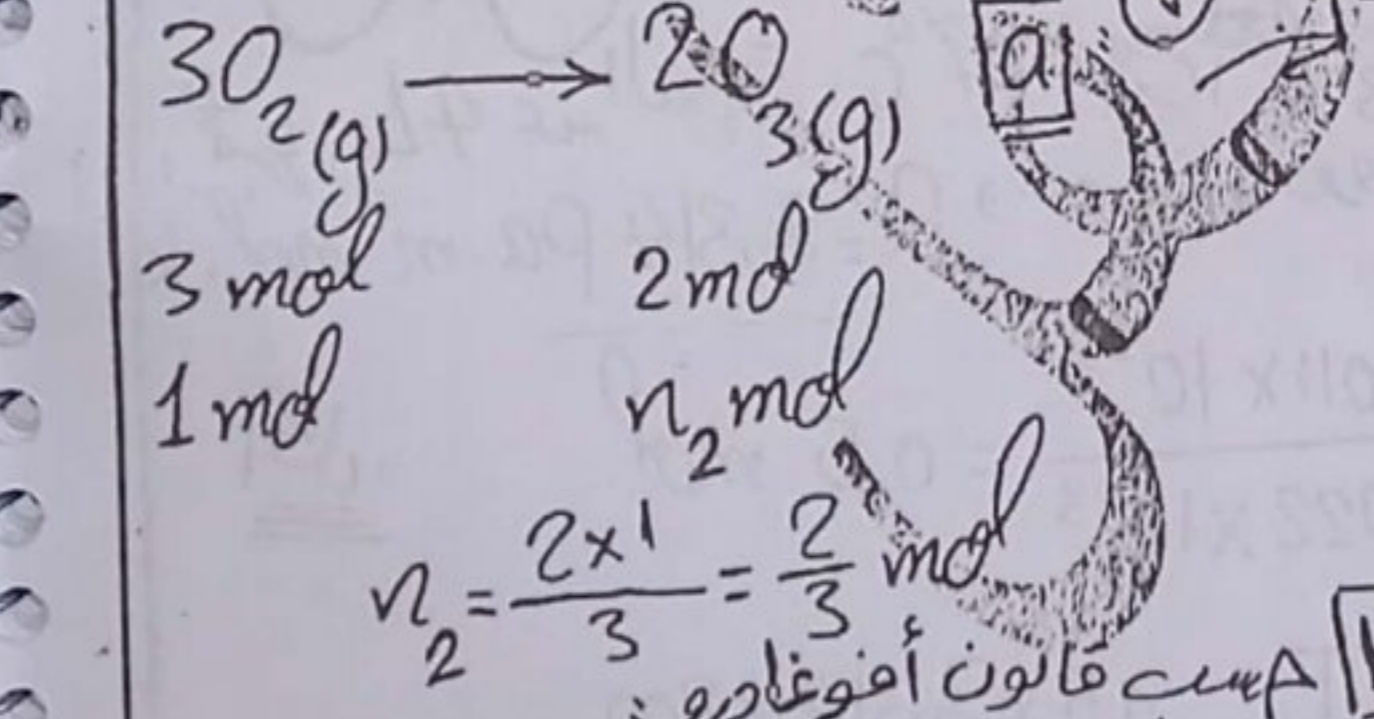 3O₂(g) → 2O₃(g)
a
3 mol 2 mol
1 mol n₂ mol
n₂ = 2×1/3 = 2/3 mol
حسب قانون أفوغادرو :